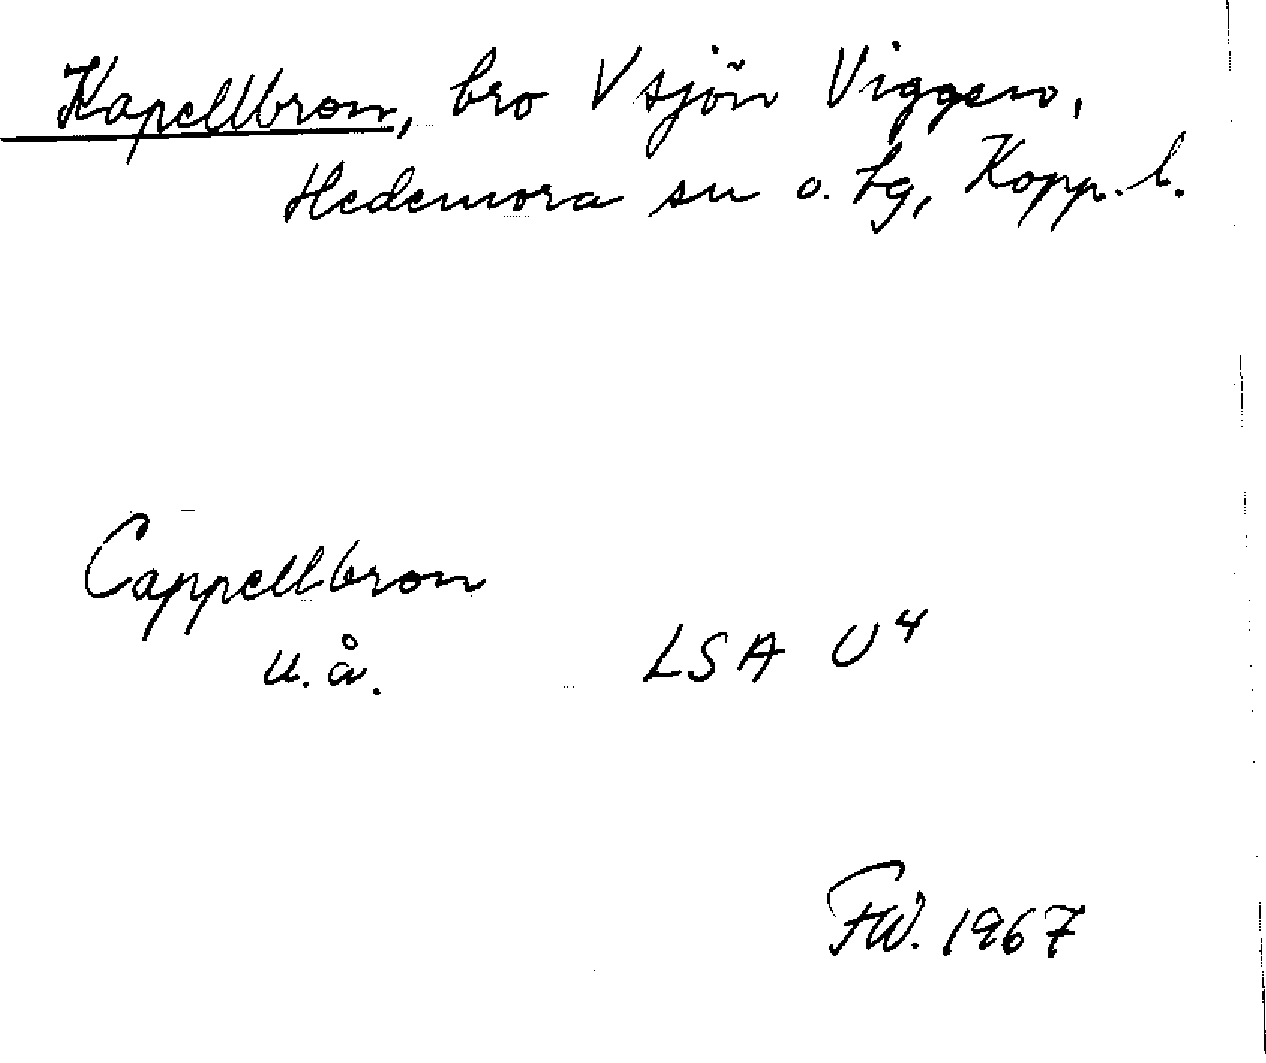 Kapellbron, bro V sjön Viggen,
Hedemora sn o. tg, Kopp. l.
Cappellbron
u. å. LSA U⁴
FW. 1967